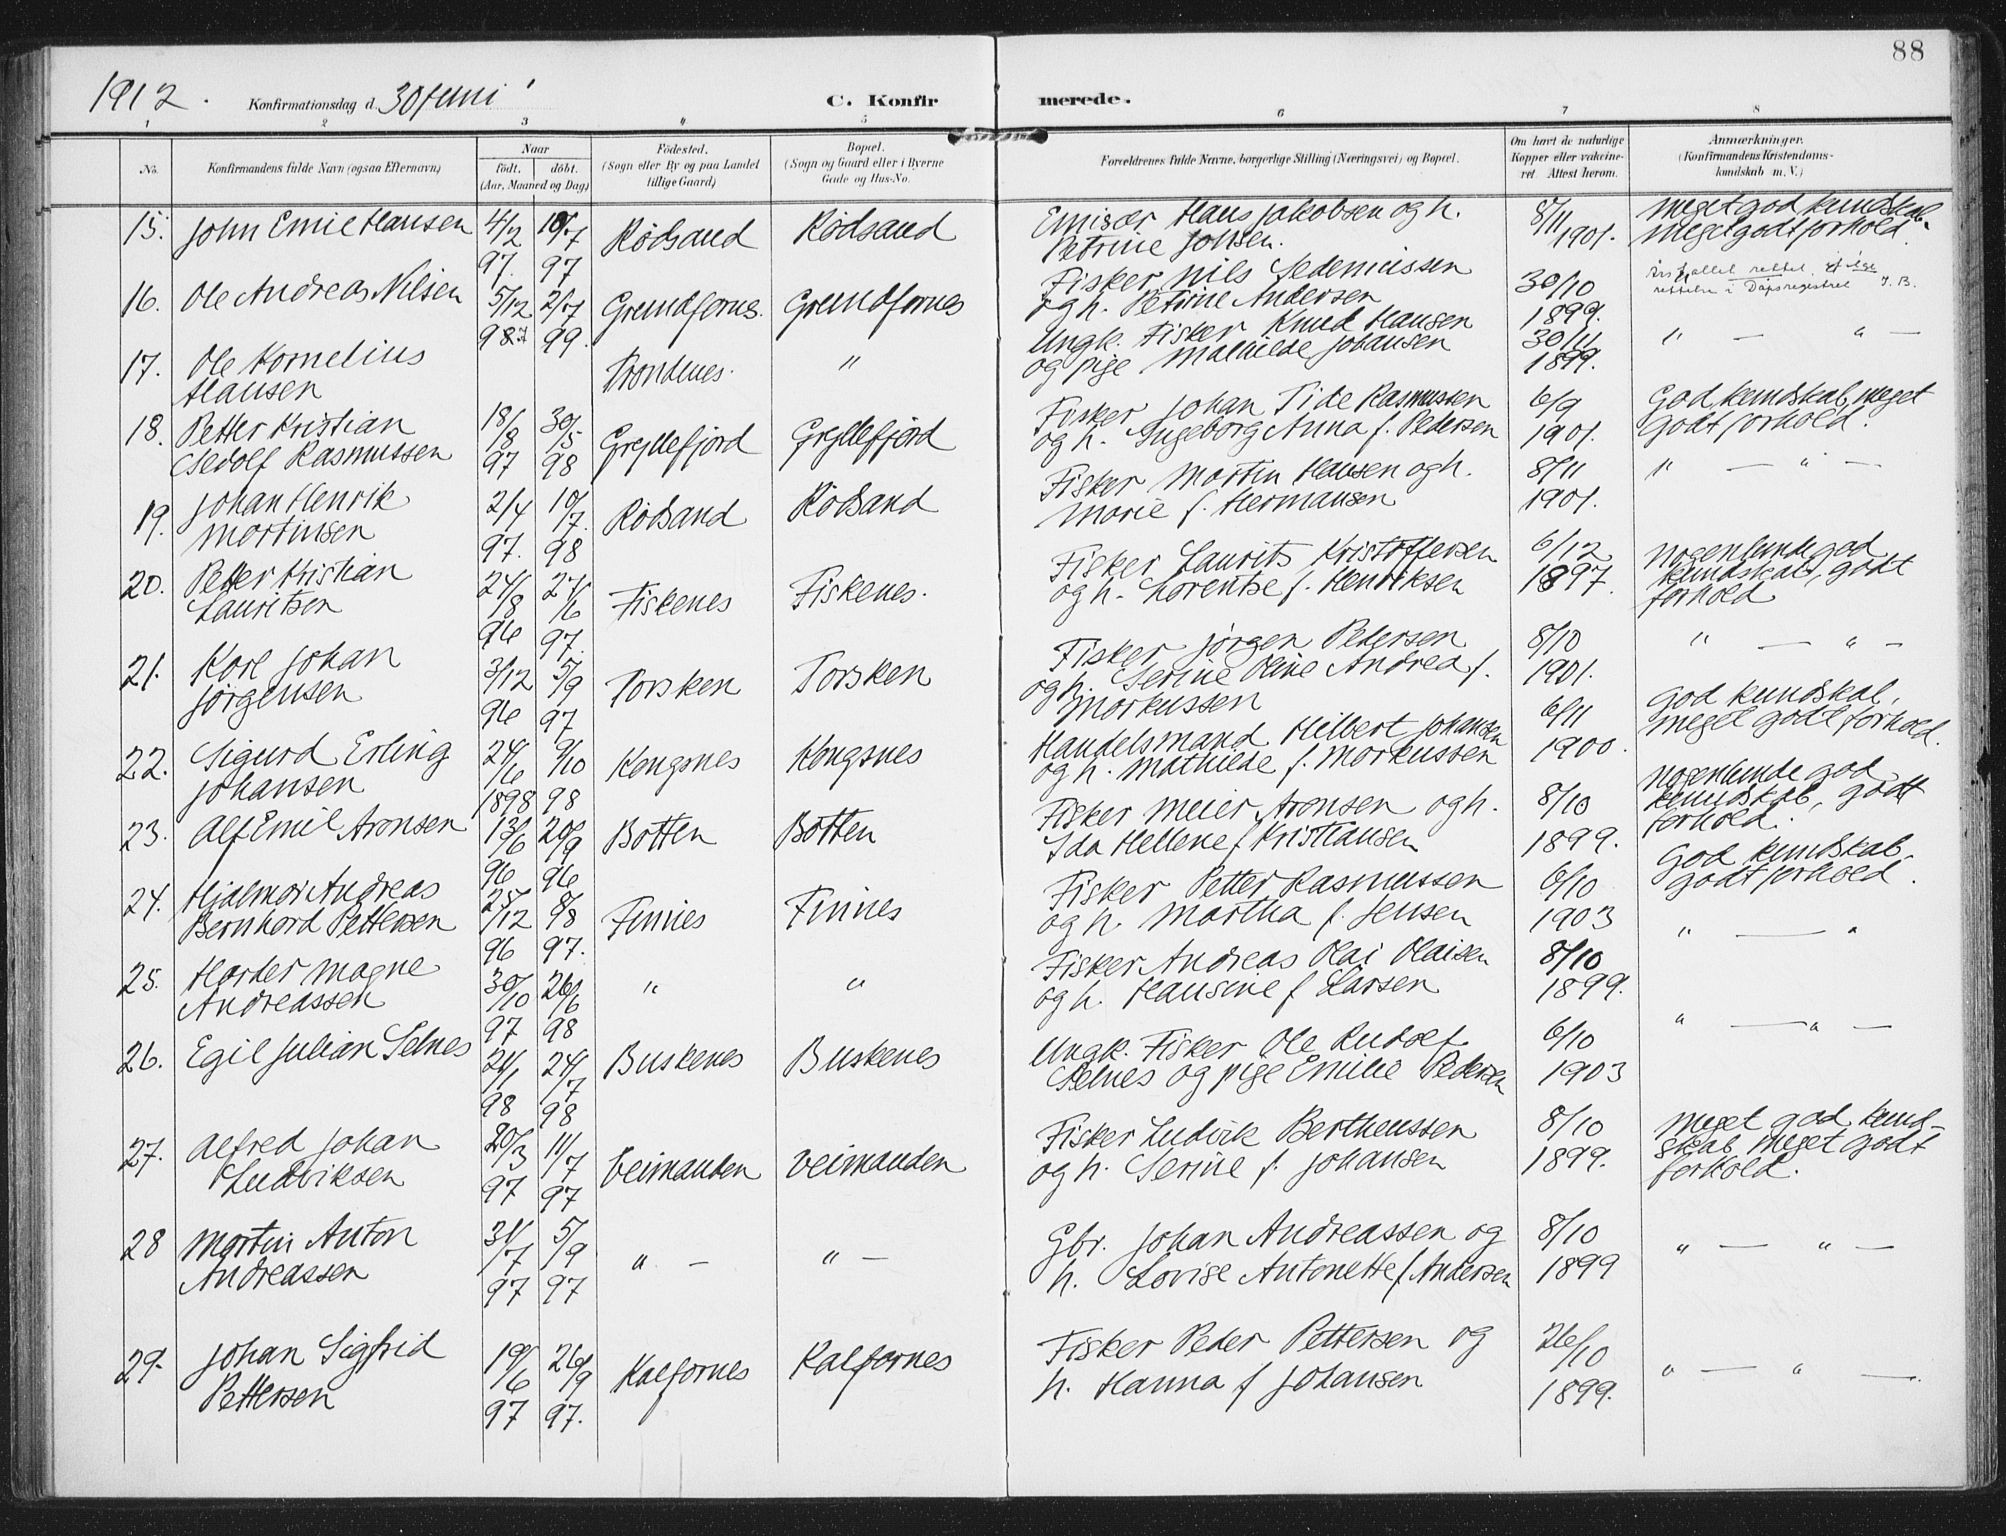 88
1912. Konfirmationsdag d. 30 juni
C. Konfirmerede.
1 2 3 4 5 6 7 8
No. Konfirmandens fulde Navn (ogsaa Efternavn) Naar født. døbt. (Aar, Maaned og Dag) Fødested. (Sogn eller By og paa Landet tillige Gaard) Bopæl. (Sogn og Gaard eller i Byerne Gade og Hus-No. Forældrenes fulde Navne, borgerlige Stilling (Næringsvei) og Bopæl. Om havt de naturlige Kopper eller vakcineret. Attest herom. Anmærkninger. (Konfirmandens Kristendomskundskab m. V.)
15. John Emil Hansen 4/2 97. 18/7 97 Rödsand Rödsand Emisær Hans Jakobsen og h. Petrine Johsen. 8/11 1901. Meget god kundskab. Meget godt forhold.
16. Ole Andreas Nilsen 5/12 98 2/7 99. Grundfornes. Grundfornes Fisker Nils Sedeniussen og h. Petrine Andersen 30/10 1899. rettelse i Dåpsregistret J.B.
17. Ole Kornelius Hansen Trondenes. " Ungk. Fisker Knud Hansen og pige Mathilde Johansen 30/11 1899. " — " —
18. Petter Kristian Sedolf Rasmussen 18/8 97 30/5 98 Gryllefjord Gryllefjord Fisker Johan Tide Rasmussen og h. Ingeborg Anna f. Pedersen 6/9 1901. God kundskab, meget godt forhold.
19. Johan Henrik Martinsen 2/4 97. 10/7. 98 Rödsand Rödsand Fisker Martin Hansen og h. Marie f. Hermansen 8/11 1901. " — " —
20. Petter Kristian Lauritsen 24/8 96 27/6 97. Fiskenes Fiskenes. Fisker Laurits Kristoffersen og h. Lorentse f. Henriksen 6/12 1897. Nogenlunde god kundskab, godt forhold
21. Karl Johan Jørgensen 3/12 96 5/9 97 Torsken Torsken Fisker Jørgen Pedersen og h. Serine Oline Andrea f. Markussen 8/10 1901. " — " —
22. Sigurd Erling Johansen 24/6 1898 9/10 98 Kongsnes Kongsnes Handelsmand Hilbert Johansen og h. Mathilde f. Markussen 6/11 1900. God kundskab, meget godt forhold.
23. Alf Emil Aronsen 13/6 96 20/9 96 Botten Botten Fisker Meier Aronsen og h. Ida Hellene f Kristiansen 8/10 1899. Nogenlunde god kundskab, godt forhold.
24. Hjalmar Andreas Bernhard Pettersen 25/12 96 8/8 97. Finnes Finnes Fisker Petter Rasmussen og h. Martha f. Jensen 6/10 1903 God kundskab. godt forhold.
25. Harder Magne Andreassen 30/10 97 26/6 98 " " Fisker Andreas Olai Olaisen og h. Hansine f Larsen 8/10 1899. " — "
26. Egil Julian Selnes 21/1 98 24/7 98 Buskenes Buskenes Ungk. Fisker Ole Rudolf Selnes og pige Emilie Pedersen 6/10 1903 " — " —
27. Alfred Johan Ludviksen 20/3 97 11/7 97 Veimanden Veimanden Fisker Ludvik Bertheussen og h. Serine f. Johansen 8/10 1899. Meget god kundskab, meget godt forhold.
28 Martin Anton Andreassen 31/7 97 5/9 97 " — " — Gbr. Johan Andreassen og h. Lovise Antonette f Andersen 8/10 1899 " — " —
29. Johan Sigfrid Pettersen 19/6 97 26/9 97. Kalfornes Kalfornes Fisker Peder Pettersen og h. Hanna f Johansen 26/10 1899. " — " —